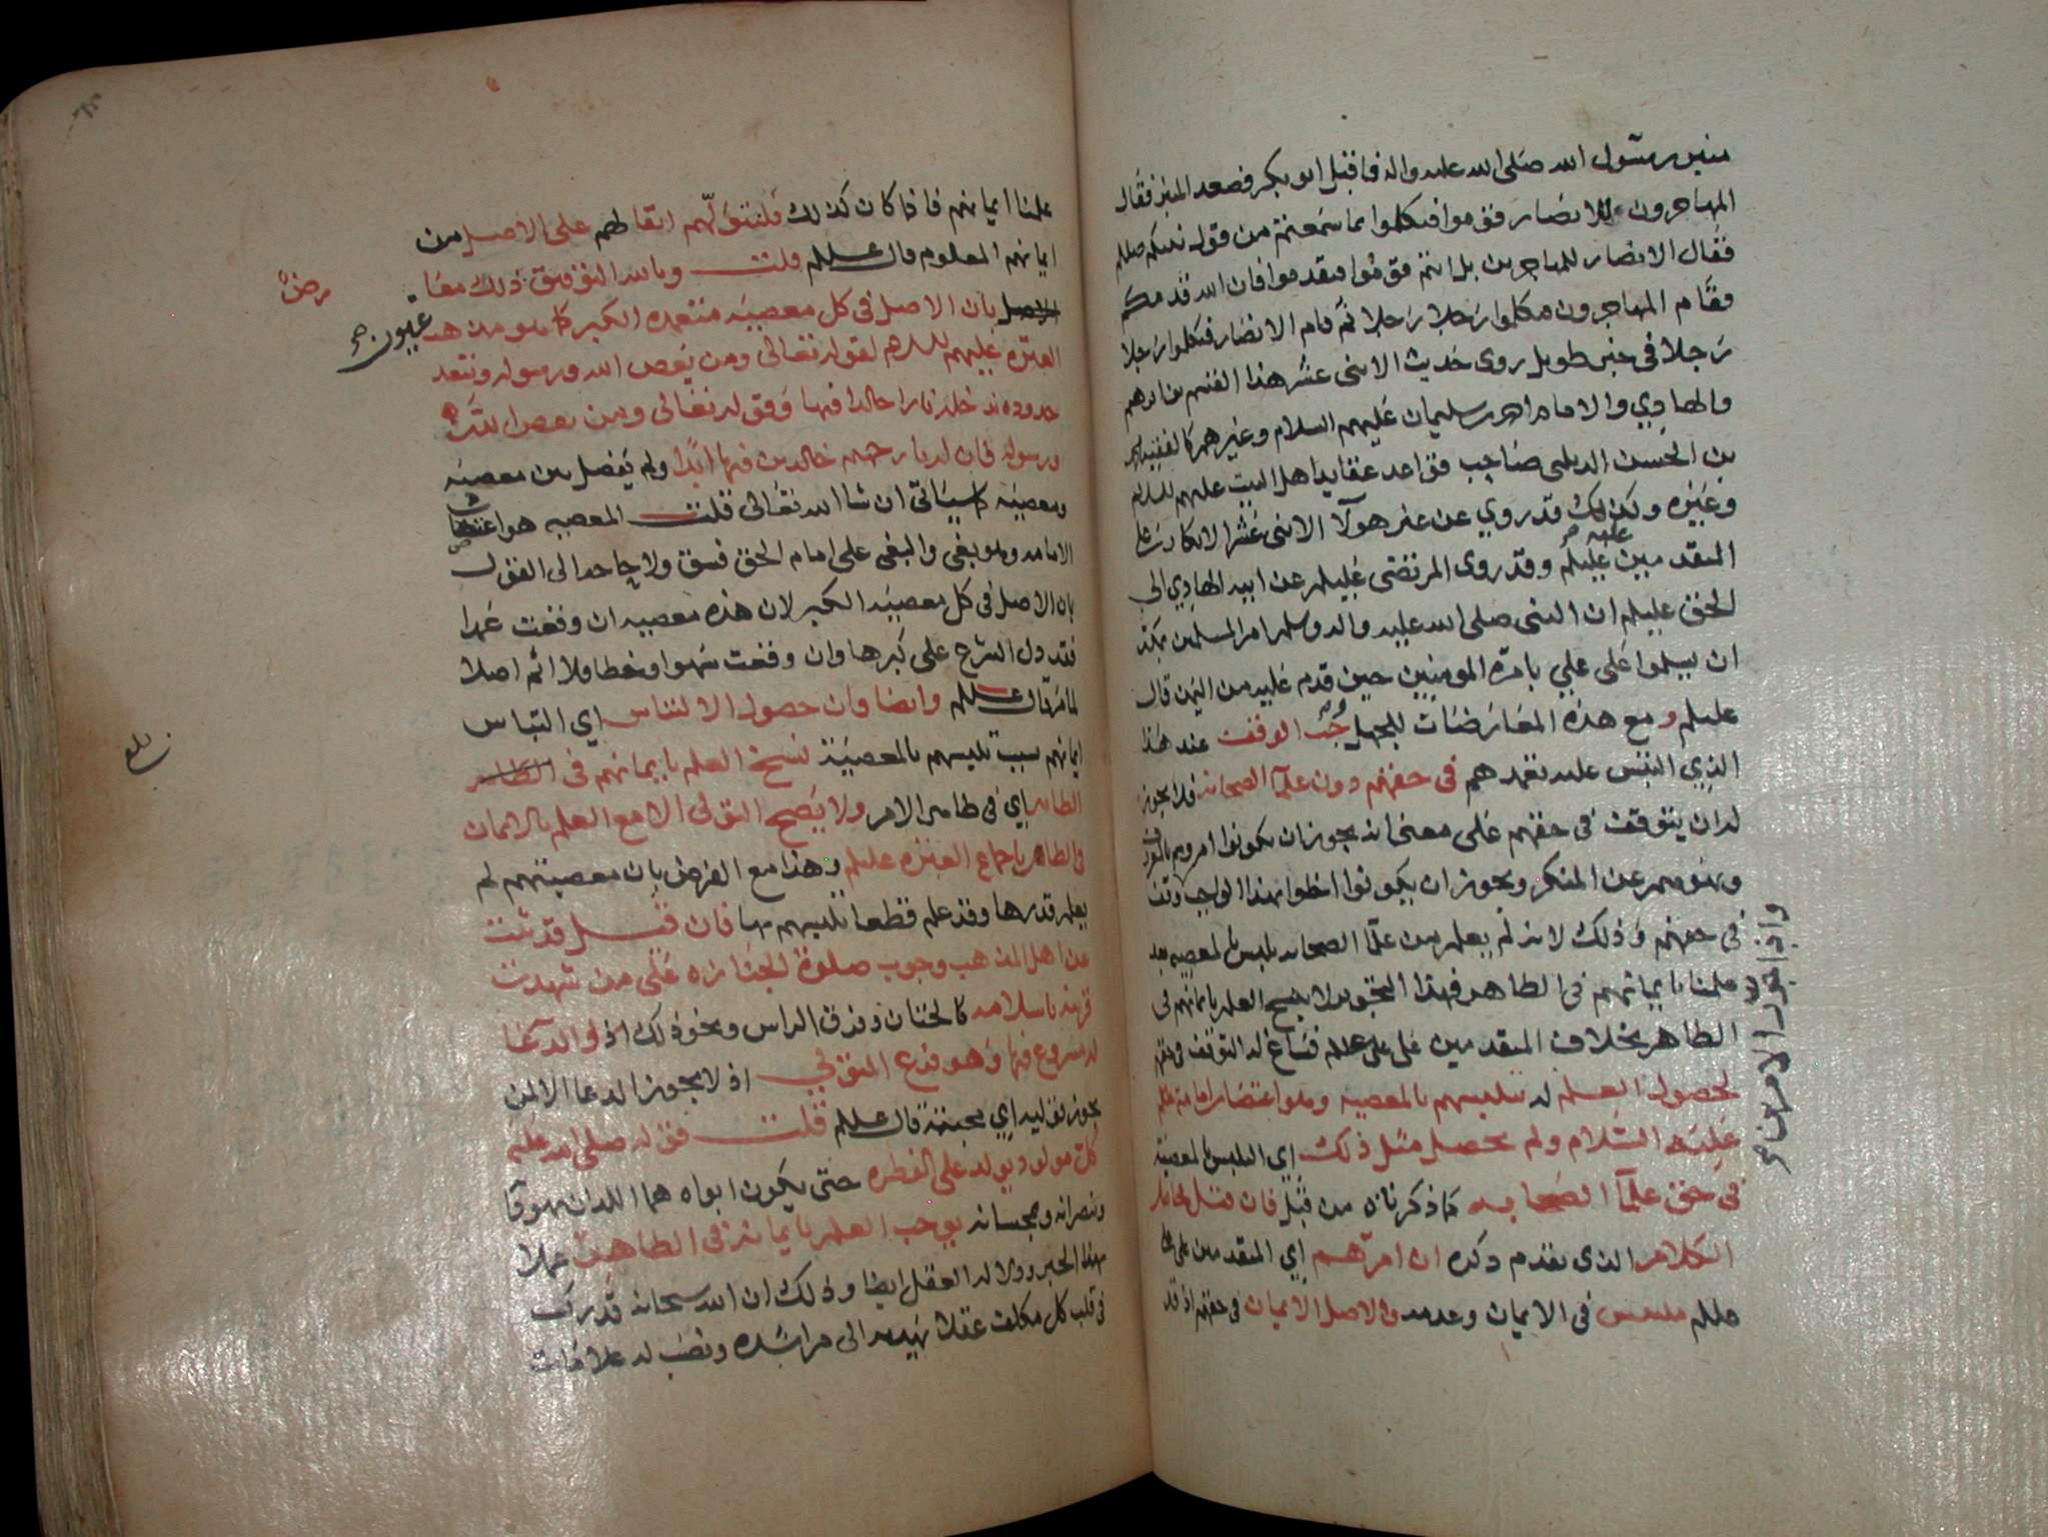 منبر رسول الله صلى الله عليه واله فاقبل ابو بكر فصعد المنبر فقال
المهاجرون للانصار قوموا فتكلموا بما سمعتم من قول نبيكم صللم
فقال الانصار للمهاجرين بل انتم قوموا فتقدموا فان الله قدمكم
فقام المهاجرون فتكلموا رجلا رجلا ثم قام الانصار فتكلموا رجلا
رجلا في خبر طويل روى حديث الاثنى عشر هذا القسم بن ابرهيم
والهادي والامام احمد بن سليمان عليهم السلام وغيرهم كالفقيه
بن الحسن الديلمى صاحب قواعد عقايد اهل البيت عليهم السلام
وغيره وكذلك قد روي عن غير هولآ الاثنى عشر الانكار على
المتقدمين عليه عليلم وقد روى المرتضى عليلم عن ابيه الهادي الى
الحق عليلم ان النبى صلى الله عليه واله وسلم امر المسلمين
ان يسلموا على علي بامرة المومنين حين قدم عليه من اليمن قال
عليلم ومع هذه المعارضات للجهل وجب الوقف عند هذا
الذي التبس عليه تعمدهم في حقهم دون علمآ الصحابه فلا يجوز
له ان يتوقف في حقهم على معنى انه يجوز ان يكونوا امروهم بالمعروف
ونهوهم عن المنكر ويجوز ان يكونوا اخلوا بهذا الواجب وتوقف
في حقهم وذلك لانه لم يعلم من علمآ الصحابه تلبس بالمعصيه بعد
علمنا بايمانهم في الظاهر فهذا التجويز لا ينسخ العلم بايمانهم في
الظاهر بخلاف المتقدمين على على عللم فساغ له التوقف في حقهم
لحصول العلم له بتلبسهم بالمعصيه وهو اغتصاب امامة
عليه السلام ولم يحصل مثل ذلك اي التلبس بالمعصية
في حق علمآ الصحابه كما ذكرناه من قبل فان قيل
الكلام الذى تقدم ذكره ان امرهم اي المتقدمين على على
عللم ملتبس في الايمان وعدمه والاصل الايمان في حقهم اذ قد
علمنا ايمانهم فاذا كان كذلك فلنتولّهم ابقا لهم على الاصل من
ايمانهم المعلوم قال عللم قلت وبالله التوفيق ذلك معا
بان الاصل في كل معصية متعمده الكبر كما هو مذهب
عيون
العتره عليهم السلام لقوله تعالى ومن يعص الله ورسوله ويتعد
حدوده ندخله نارا خالدا فيها وقوله تعالى ومن يعص الله
ورسوله فان له نار جهنم خالدين فيها ابدا ولم يفصل بين معصيه
ومعصيه كما سياتى ان شا الله تعالى قلت المعصيه هو اغتصاب
الامامه وهو بغى والبغى على امام الحق فسق ولا حاجه الى القول
بان الاصل في كل معصية الكبر لان هذه معصيه ان وقعت عمدا
فقد دل الشرع على كبرها وان وقعت سهوا او خطا فلا اثم اصلا
لما مر قال عللم وايضا فان حصول الالتباس اي التباس
ايمانهم بسبب تلبسهم بالمعصية نسخ العلم بايمانهم في
الظاهر اي في ظاهر الامر ولا يصح التولى الا مع العلم بالايمان
في الظاهر باجماع العتره عليلم وهذا مع الفرض بان معصيتهم لم
يعلم قدرها وقد علم قطعا تلبسهم بها فان قيل قد ثبت
عن اهل المذهب وجوب صلوة الجنازه على من شهدت
قرينه باسلامه كالختان وفرق الراس ونحو ذلك اذ والدعا
له مشروع فيها وهو فرع التولي اذ لا يجوز الدعا الا لمن
يجوز توليه اي محبته قال عللم قلت قوله صلى الله عليه
كل مولود يولد على الفطره حتى يكون ابواه هما اللذان يهودانه
وينصرانه ويمجسانه يوجب العلم بايمانه في الظاهر عملا
بهذا الخبر ودلاله العقل ايضا وذلك ان الله سبحانه قد ركب
في قلب كل مكلف عقلا يهديه الى مراشده ونصب له علامات